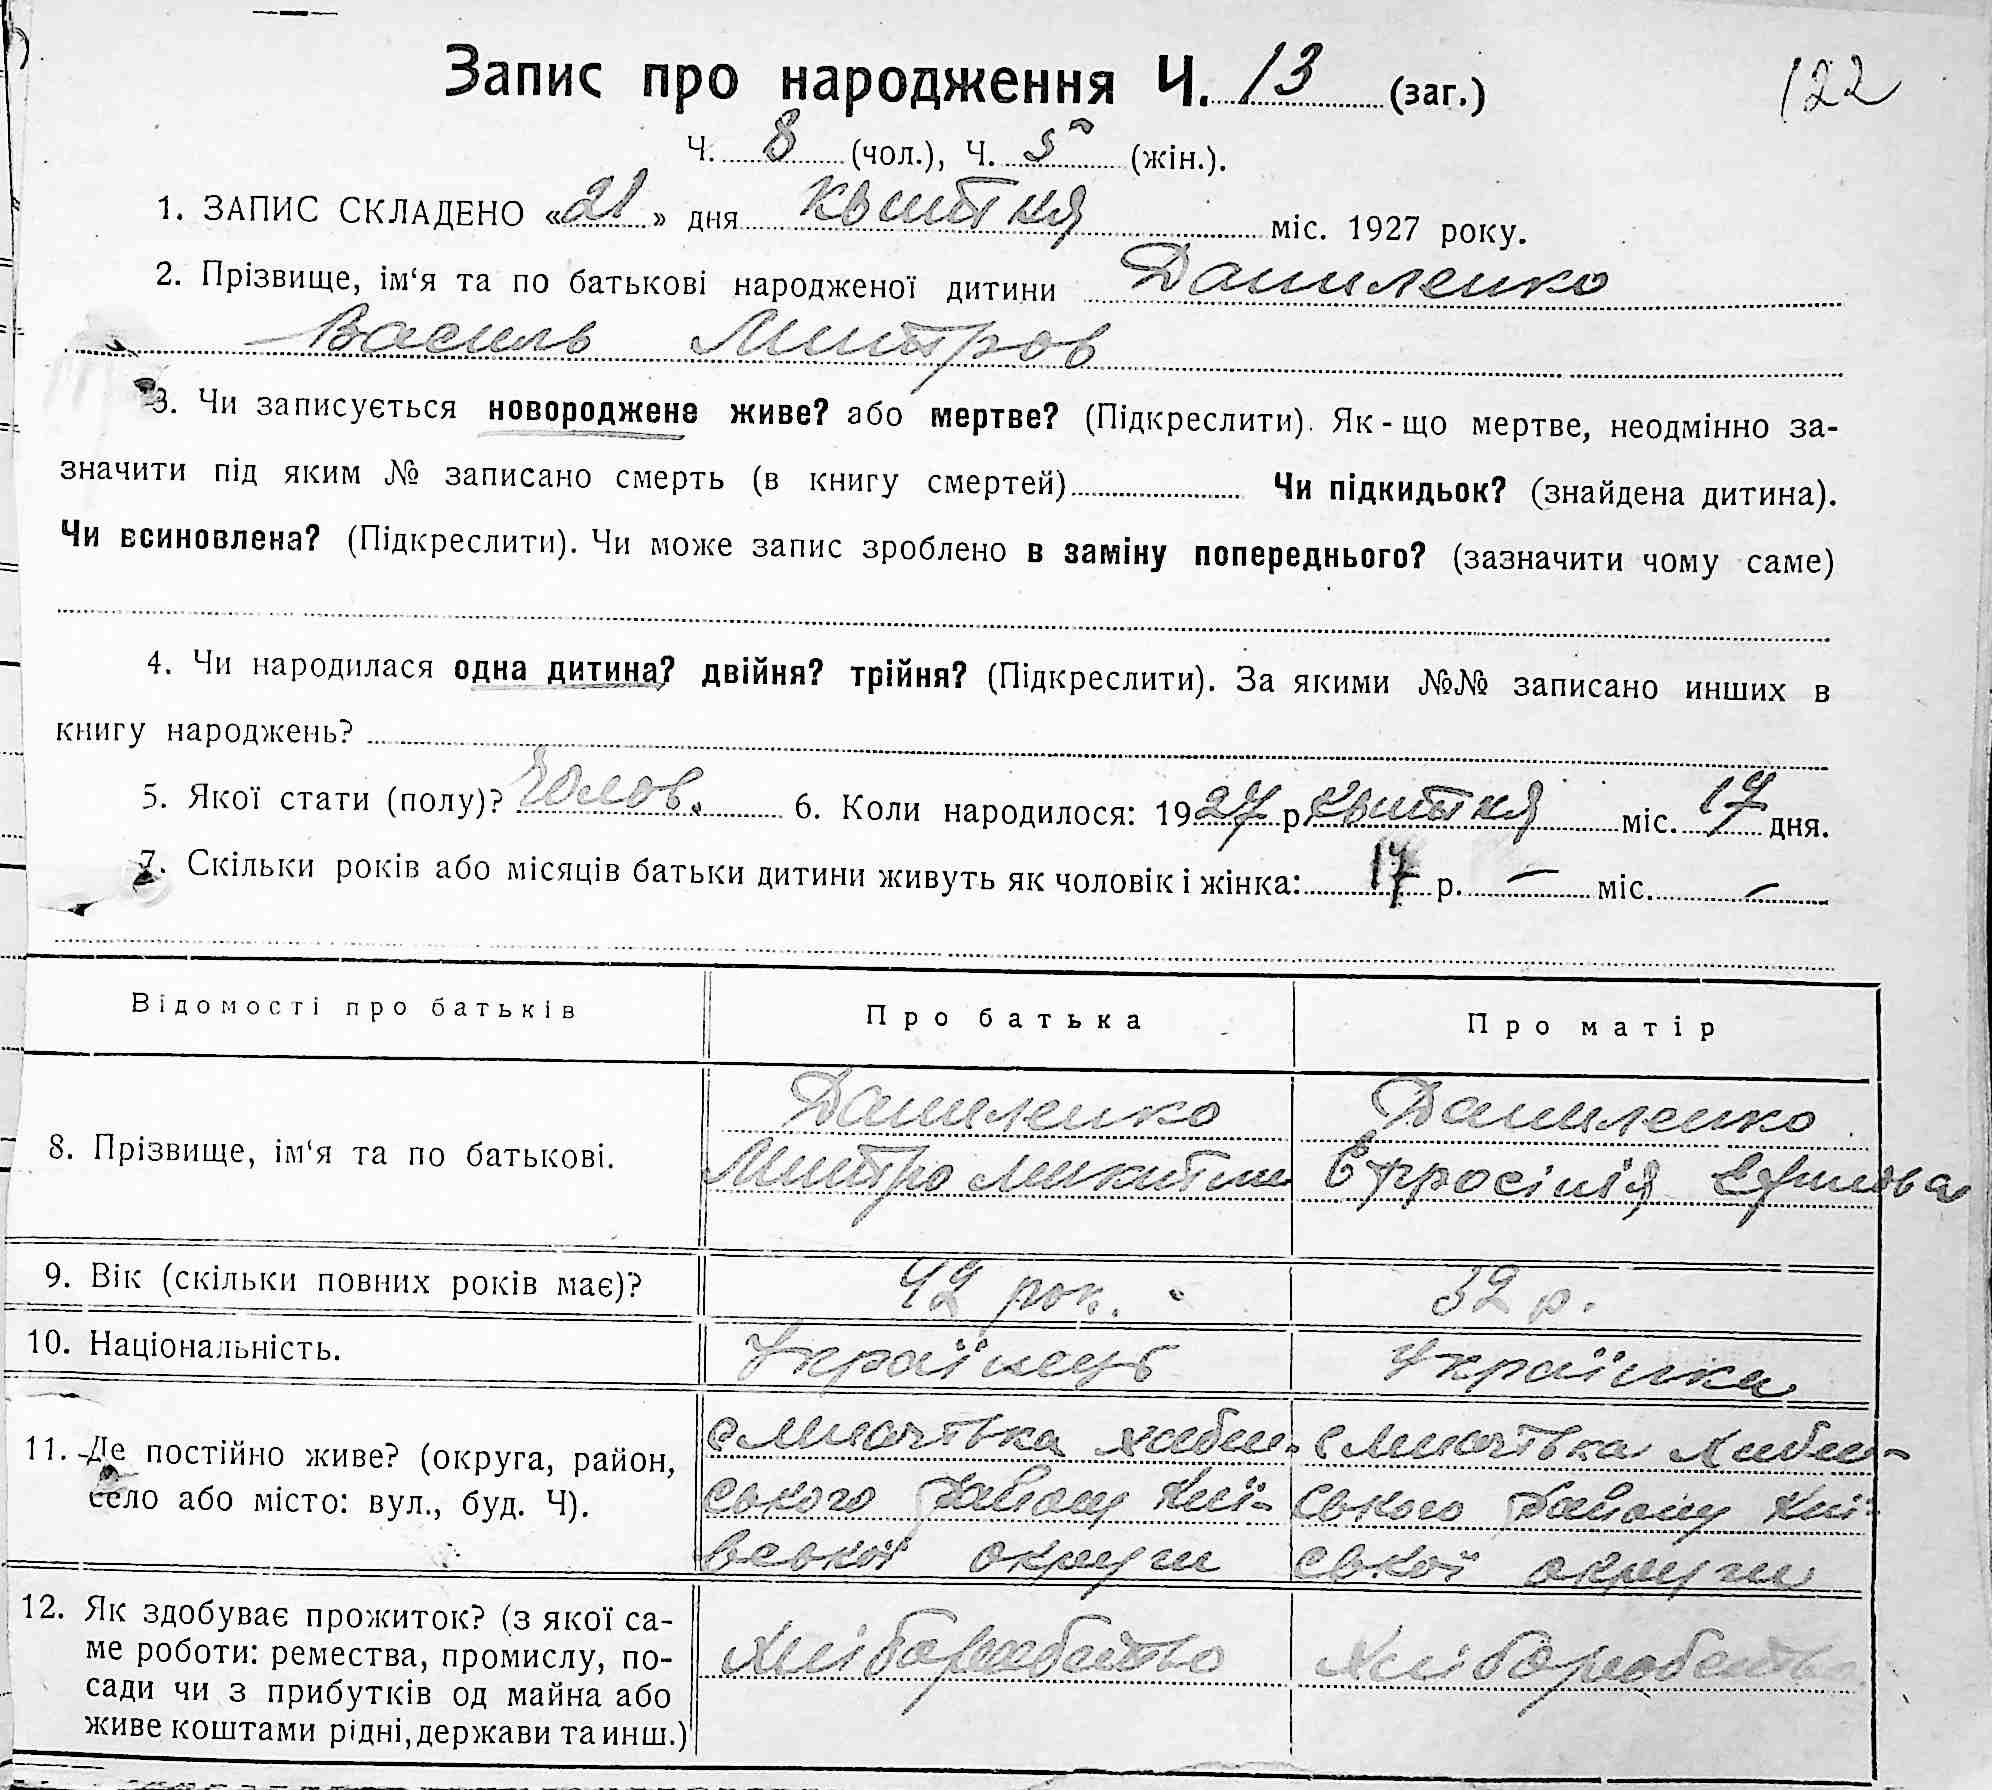 Запис про народження Ч. 13 (заг.) 122
Ч. 8 (чол.), Ч. 5 (жін.).
1. ЗАПИС СКЛАДЕНО «21» дня квітня міс. 1927 року.
2. Прізвище, ім‘я та по батькові народженої дитини Даниленко
Василь Митров
3. Чи записується новороджене живе? або мертве? (Підкреслити). Як-що мертве, неодмінно за-
значити під яким № записано смерть (в книгу смертей) Чи підкидьок? (знайдена дитина).
Чи всиновлена? (Підкреслити). Чи може запис зроблено в заміну попереднього? (зазначити чому саме)
4. Чи народилася одна дитина? двійня? трійня? (Підкреслити). За якими №№ записано инших в
книгу народжень?
5. Якої стати (полу)? Чолов. 6. Коли народилося: 1927 р. квітня міс. 17 дня.
7. Скільки років або місяців батьки дитини живуть як чоловік і жінка: 17 р. — міс. —
Відомості про батьків Про батька Про матір
8. Прізвище, ім‘я та по батькові.
Даниленко
Митро Микитин
Даниленко
Єфросінія
9. Вік (скільки повних років має)? 42 рок. 32 р.
10. Національність. Українець Українка
11. Де постійно живе? (округа, район,
село або місто: вул., буд. Ч).
с Мигачівка хабен-
ського району Киї-
вської округи
с Хабен-
ського району Киї-
ської округи
12. Як здобуває прожиток? (з якої са-
ме роботи: ремества, промислу, по-
сади чи з прибутків од майна або
живе коштами рідні, держави та инш.)
Хліборобство
Хліборобство